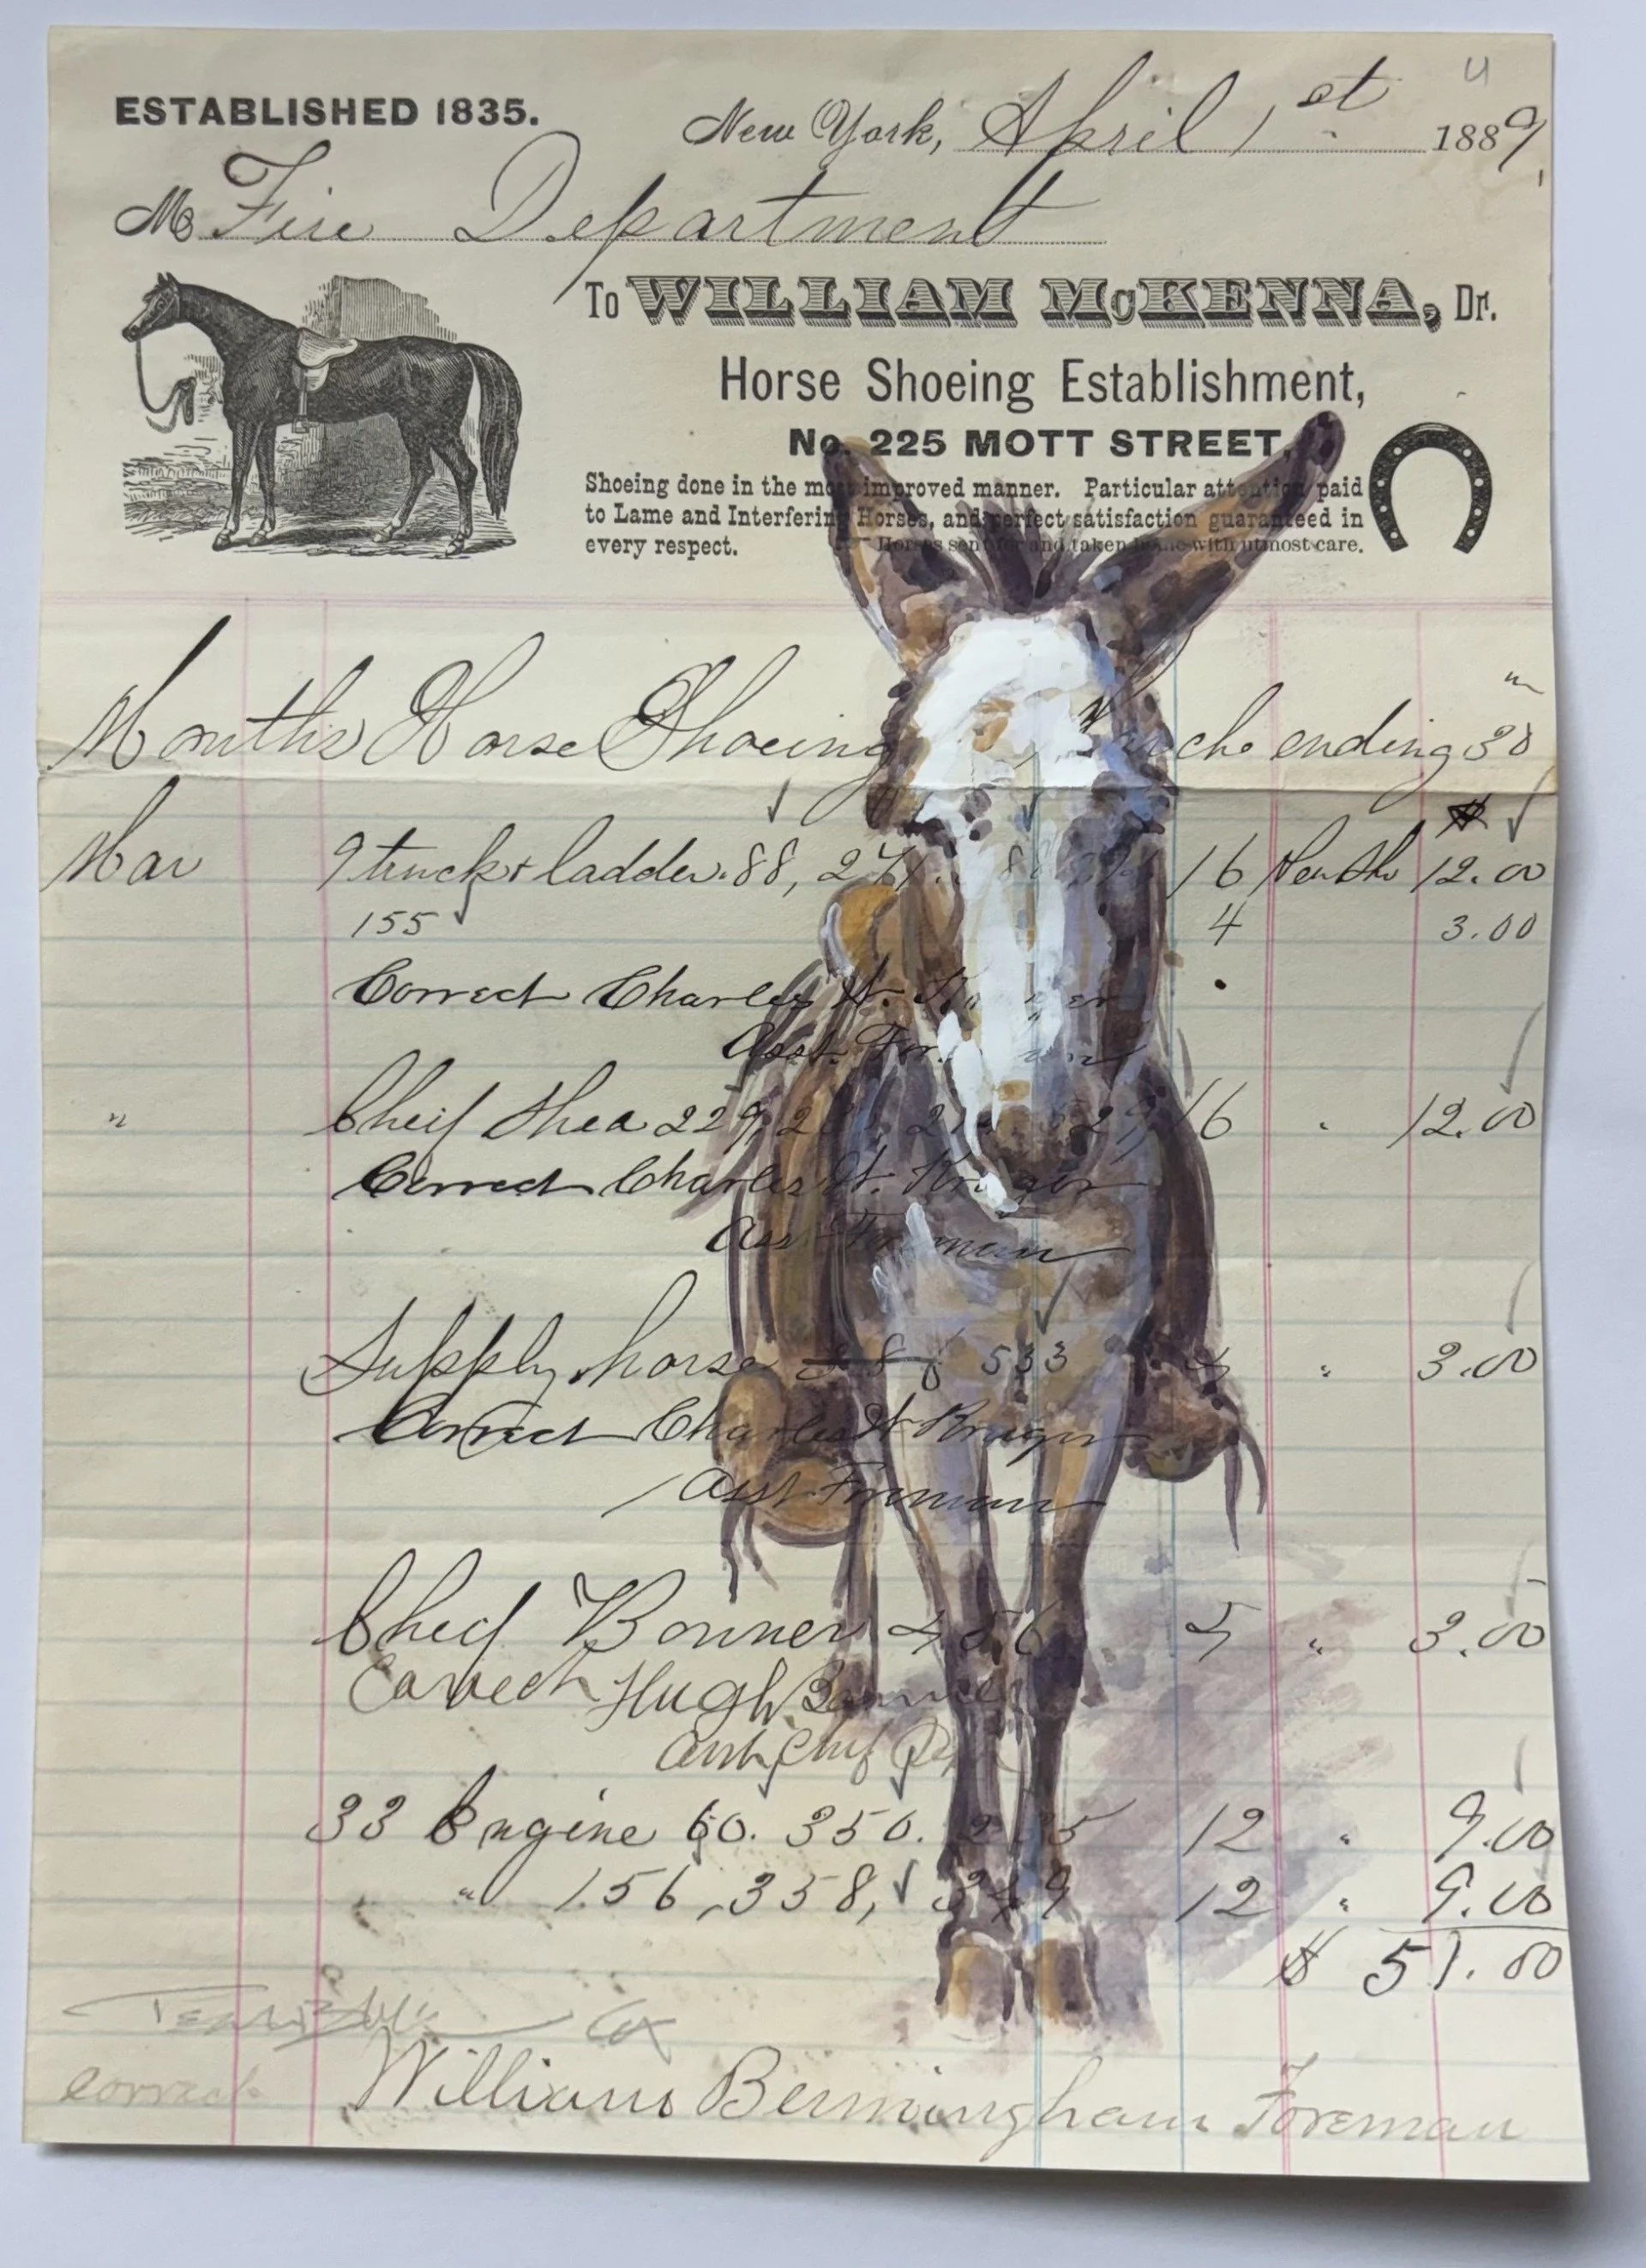 ESTABLISHED 1835.
New York, April 1st 1889,
M Fire Department
To WILLIAM McKENNA, Dr.
Horse Shoeing Establishment,
No. 225 MOTT STREET,
Shoeing done in the most improved manner. Particular attention paid
to Lame and Interfering Horses, and perfect satisfaction guaranteed in
every respect. Horses sent for and taken home with utmost care.
Months Horse Shoeing March ending 30
Mar 9 truck & ladder. 88, 16 12.00
155 4 3.00
Correct Charles H.
Asst.
" Cheif Shea 229, 16 " 12.00
Correct Charles H. Kruger
Ass. Foreman
Supply horse 533 " 3.00
Correct Charles H Kruger
Asst Foreman
Cheif Bonner 456 " 3.00
Correct Hugh Bonner
33 Engine 60. 350. 12 " 9.00
" 156, 358, 349 12 " 9.00
$ 51.00
correct William Bermingham Foreman